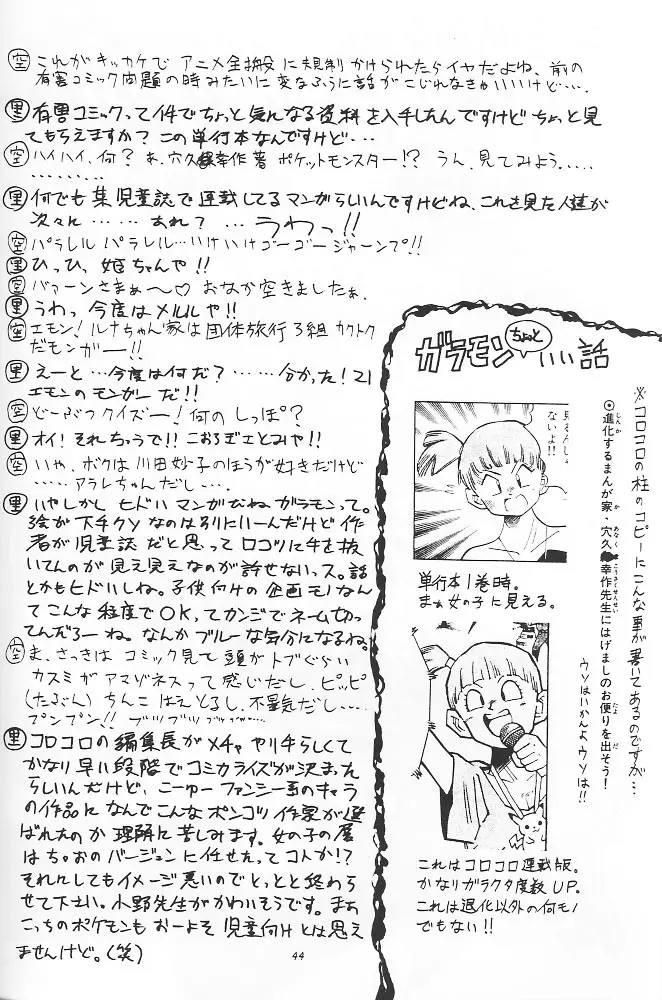 空 これがキッカケで アニメ全搬に規制かけられたらイヤだよね、前の
有害コミック問題の時みたいに変なふうに話がこじれなきゃいいけど…．
里 有害コミックって件でちょっと気になる資料を入手したんですけど ちょっと見
てもらえますか？ この単行本なんですけど・・・
空 ハイハイ、何？ あ、穴久保幸作著 ポケットモンスター!? うん、見てみよう、……
………．
里 何でも某児童誌で連載してるマンガらしいんですけどね、これを見た人達が
次々に… …あれ？ …うわっ!!
空 パラレル パラレル…いけいけゴーゴージャーンプ!!
里 ひっひ、姫ちゃんや!!
空 バァーンさまぁ〜♡ おなか空きましたぁ、
里 うわっ 今度はメルルや!!
空 エモン！ルナちゃん家は団体旅行３組 カクトク
だモンガー!!
里 えーと…今度は何だ？……分かった！21
エモンのモンガーだ!!
空 どーぶつクイズー！何のしっぽ？
里 オイ！それちゃうで!! こおろぎさとみや!!
空 いや、ボクは川田妙子のほうが好きだけど
……アラレちゃんだし…．
里 いやしかし ヒドいマンガだね ガラモンって。
絵が下手クソなのは別にいーんだけど作
者が児童誌だと思ってロコツに手を抜
いてんのが見え見えなのが許せないっス。話
とかもヒドいしね。子供向けの企画モノなん
てこんな程度でOK、てカンジでネーム切っ
てんだろーね。なんかブルーな気分になるね。
空 ま、さっきは コミック見て頭がトブぐらい
カスミがアマゾネスって感じだし、ピッピ
(たるぶん) ちんこ はえとるし、不景気だし….
プンプン!! ブツブツブツ…
里 コロコロの編集長がメチャやり手らしくて
かなり早い段階でコミカライズが決まった
らしいんだけど、こーゆーファンシー系のキャラ
の作品になんでこんなポンコツ作家が選
ばれたのか理解に苦しみます。女の子の層
はちゃおのバージョンに任せたってコトか!?
それにしてもイメージ悪いのでとっとと終わら
せて下さい。小野先生がかわいそうです。まぁ
こっちのポケモンもおーよそ児童向けとは思え
ませんけど。(笑)
ガラモン ちょっといい話
※コロコロの柱のコピーにこんな事が書いてあるのですが…
◎進化するまんが家・穴久保幸作先生にはげましのお便りを出そう！
しんか
か
あなく
こうさくせんせい
たよ
だ
ウソはいかんよウソは!!
見るんじゃ
ないよ!!
単行本１巻時。
まぁ女の子に見える。
これはコロコロ連載版。
かなりガラクタ度数UP。
これは退化以外の何モノ
でもない!!
44